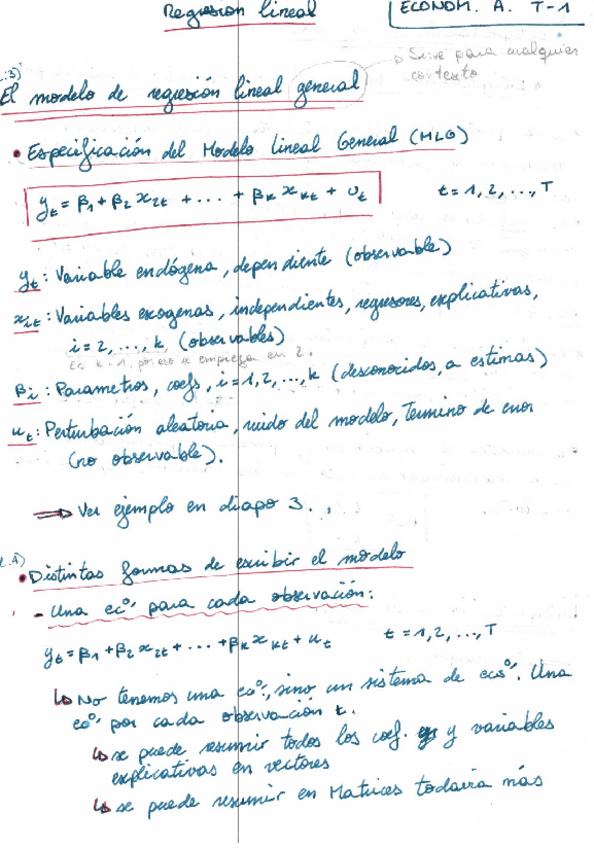 Regresión lineal
ECONOM. A. T-1
Sirve para cualquier
contexto
El modelo de regresión lineal general
• Especificación del Modelo Lineal General (MLG)
y_t = β_1 + β_2 x_2t + ... + β_k x_kt + u_t t = 1, 2, ..., T
y_t: Variable endógena, dependiente (observable)
x_it: Variables exogenas, independientes, regresores, explicativas,
i = 2, ..., k (observables)
k-1, por eso empieza en 2.
β_i: Parametros, coefs, i = 1, 2, ..., k (desconocidos, a estimas)
u_t: Perturbación aleatoria, ruido del modelo, Termino de error
(no observable).
⇒ Ver ejemplo en diapo 3.
• Distintas formas de escribir el modelo
- Una ec° para cada observación:
y_t = β_1 + β_2 x_2t + ... + β_k x_kt + u_t t = 1, 2, ..., T
↳ No tenemos una ec°, sino un sistema de ecs°. Una
ec° por cada observación t.
↳ se puede resumir todos los coef. y variables
explicativas en vectores
↳ se puede resumir en Matrices todavía más